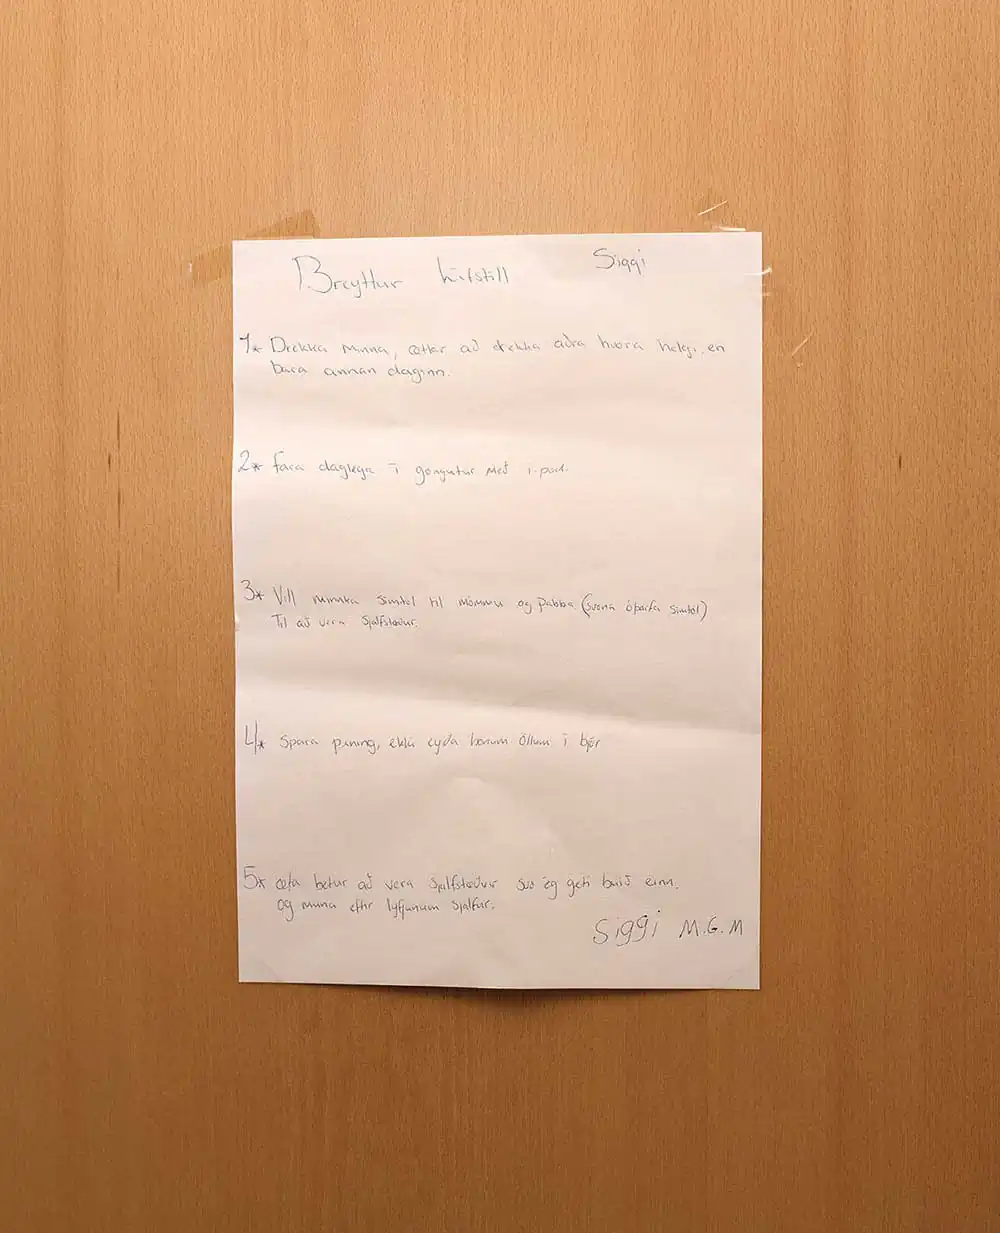 Breyttur Lífstíll Siggi
1* Drekka minna, ætlar að drekka aðra hvora helgi, en
bara annan daginn.
2* Fara daglega í gongutur með i-pod.
3* Vill minnka simtöl til mömmu og pabba. (svona óþarfa simtöl)
Til að vera Sjalfstæður.
4* Spara pening, ekki eyða honum öllum í bjór
5* æfa betur að vera Sjalfstæður svo ég geti buið einn.
og muna eftir lyfjunum sjalfur.
Siggi M.G.M